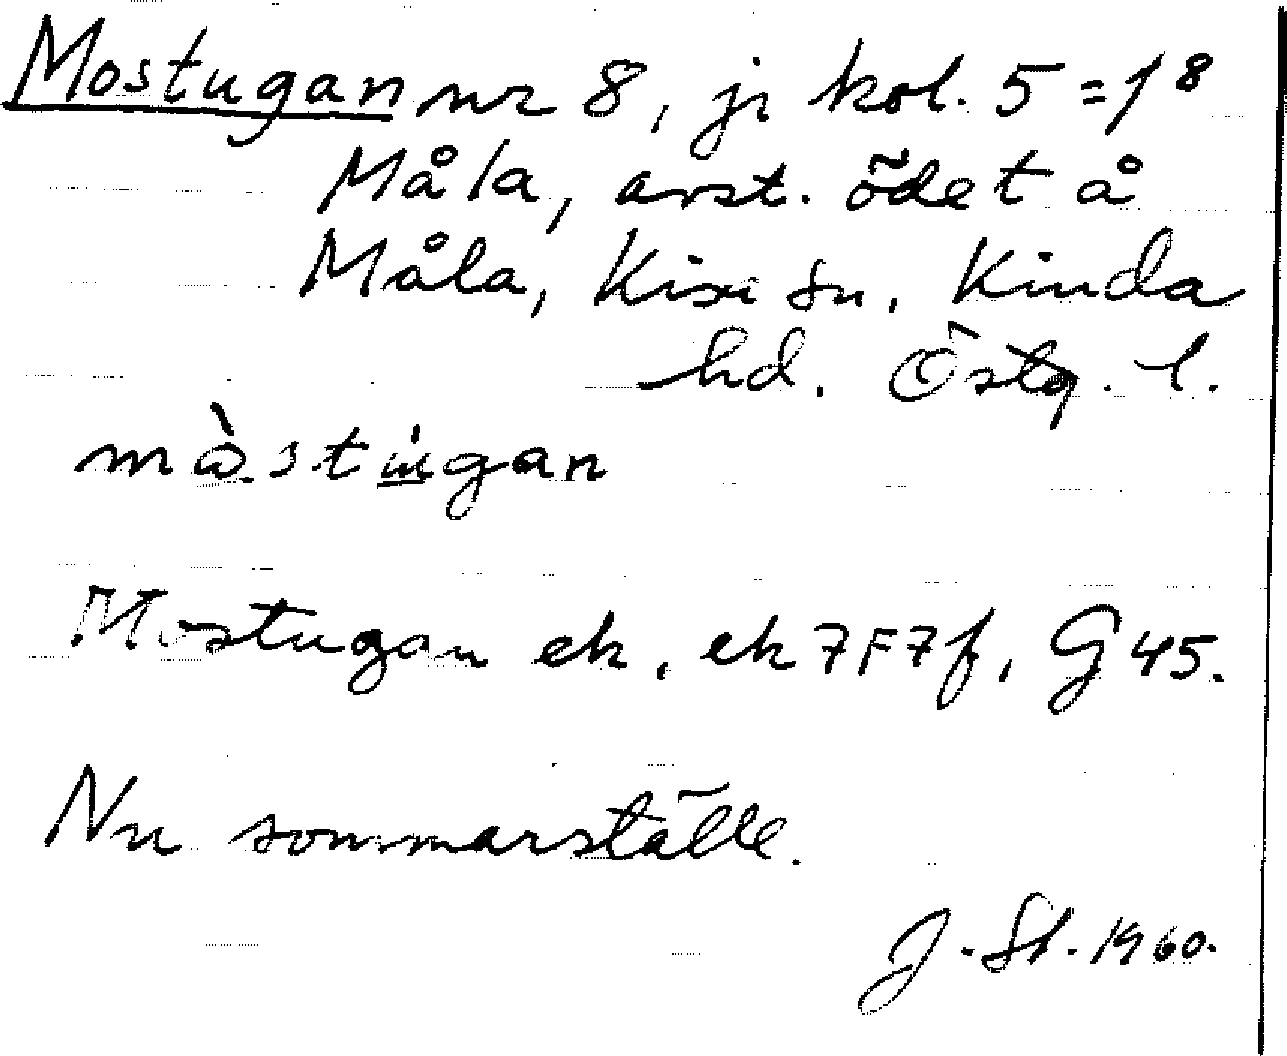 Mostugan nr 8, jr kol. 5 = 1⁸
Måla, avst. ödet å
Måla, Kisa sn. Kinda
hd. Östg. l.
mὰ.stùgan
Mostugan ek. ek 7F7f, G 45.
Nu sommarställe.
J. St. 1960.